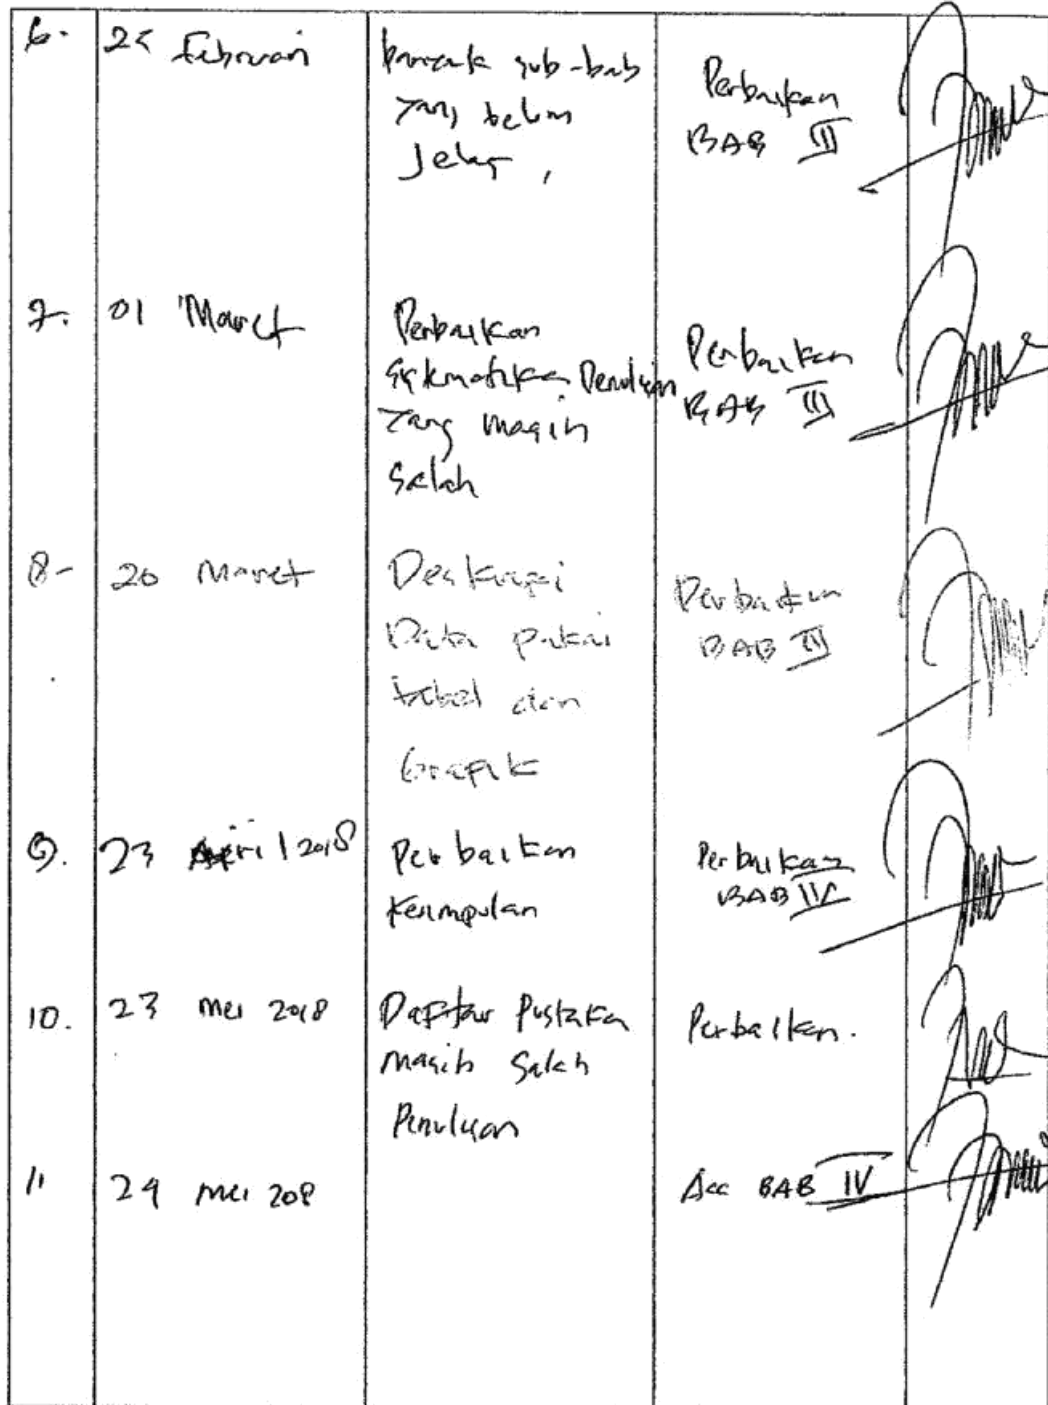 6.
25 Februari
banyak sub-bab
yang belum
Jelas,
Perbaikan
BAB III
7.
01 Maret
Perbaikan
Sistematika Penulisan
yang masih
Salah
Perbaikan
BAB III
8-
20 Maret
Deskripsi
Data pakai
tabel dan
Grafik
Perbaikan
BAB
9.
23 April 2018
Perbaikan
Kesimpulan
Perbaikan
BAB IV
10.
23 Mei 2018
Daftar Pustaka
Masih Salah
Penulisan
Perbaikan.
11
Mei 208
Acc BAB IV